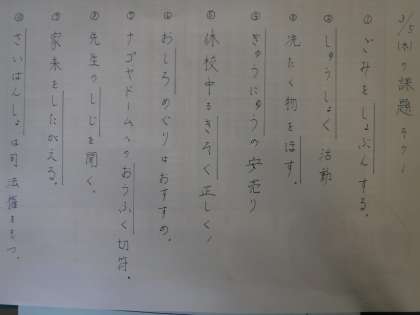 3/5(木)の課題
①ごみをしょぶんする。
②しゅうしょく活動
③洗たく物をほす。
④ぎゅうにゅうの安売り
⑤休校中もきそく正しく
⑥おしろめぐりはおすすめ。
⑦ナゴヤドームへのおうふく切符。
⑧先生のしじを聞く。
⑨家来をしたがえる。
⑩さいはんしょは司法権をもつ。